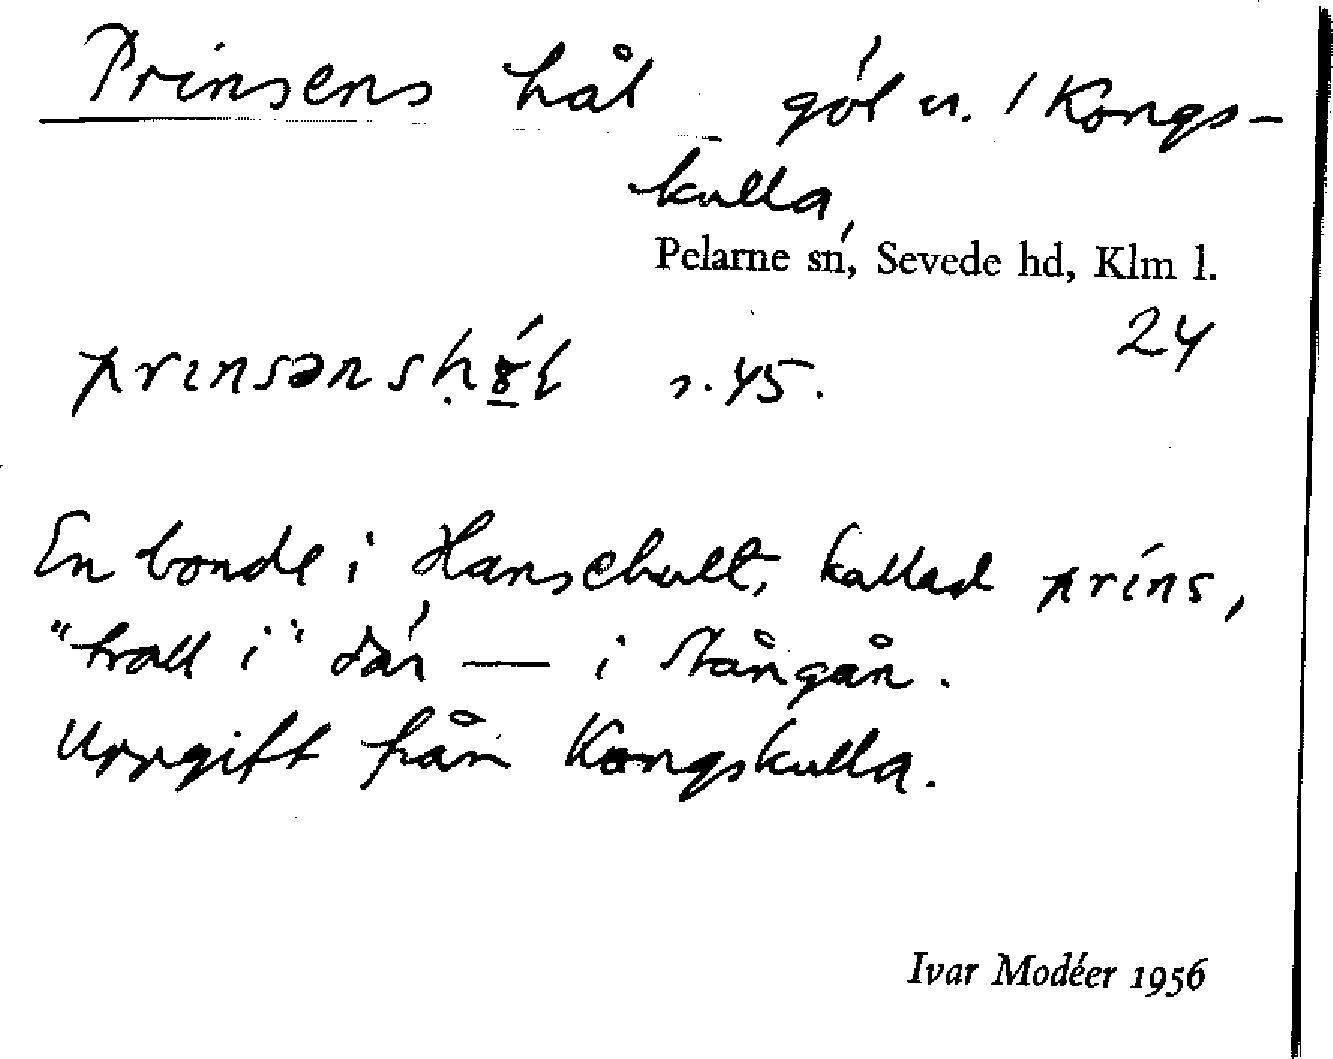 Prinsens hål göl n. / Kongs-
kulla,
Pelarne sn, Sevede hd, Klm l.
24
s. 45.
En bonde i Hanschult, kallad prins,
"trall i" där — i Stångån.
Uppgift från Kongskulla.
Ivar Modéer 1956